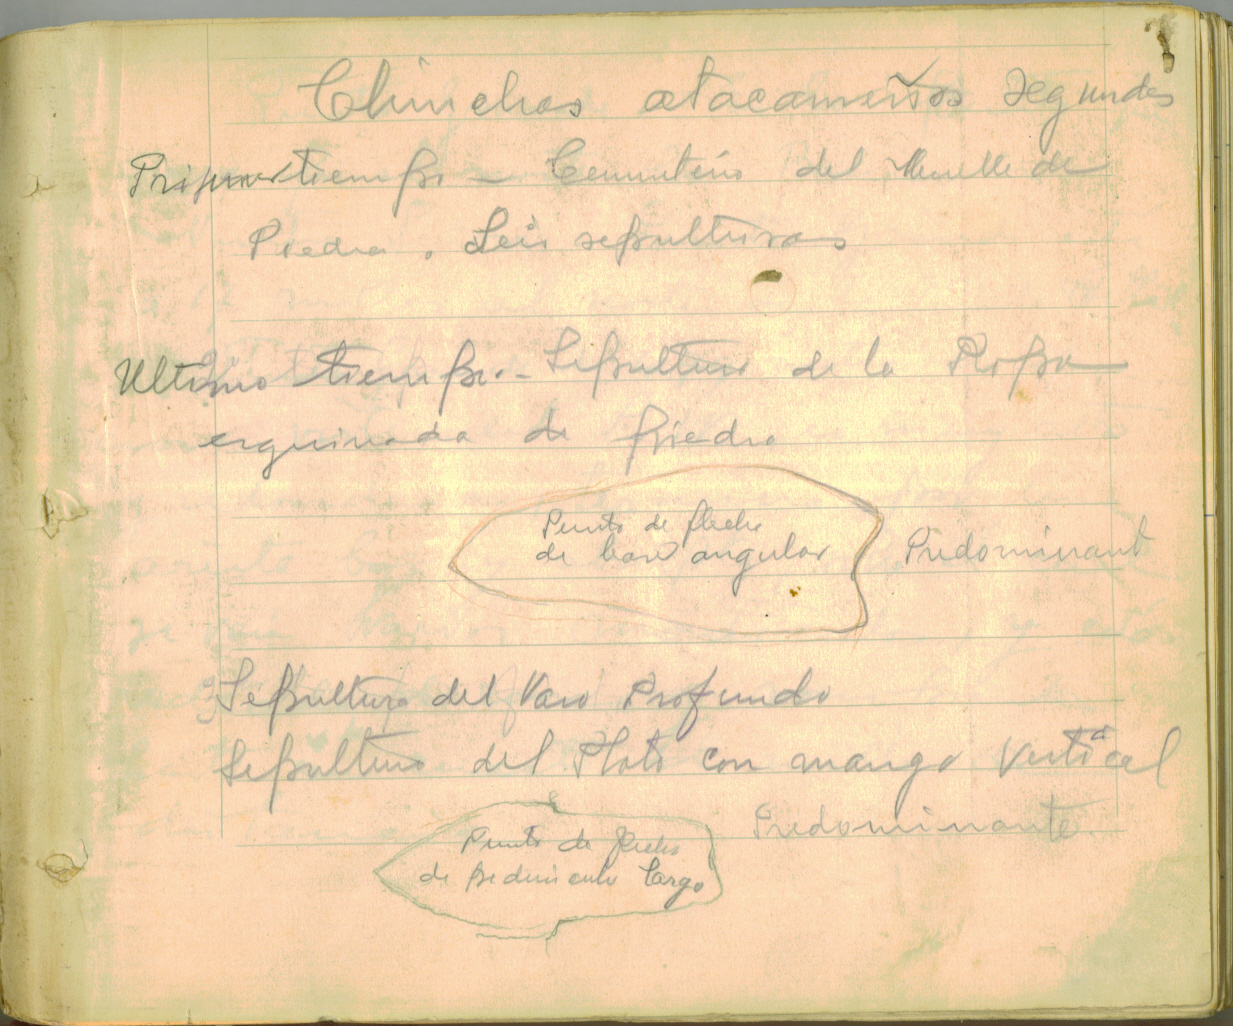 Chinchas atacameños Segundos
Primer tiempo - Cementerio del Muelle de
Piedra. Seis sepulturas
Ultimo tiempo.- Sepultura de la
esquinada de piedra
Punta de flecha
de base angular Predominant
Sepultura del Vaso Profundo
Sepultura del Plato con mango Vertical
Predominante
Punta de flecha
de pedunculo largo